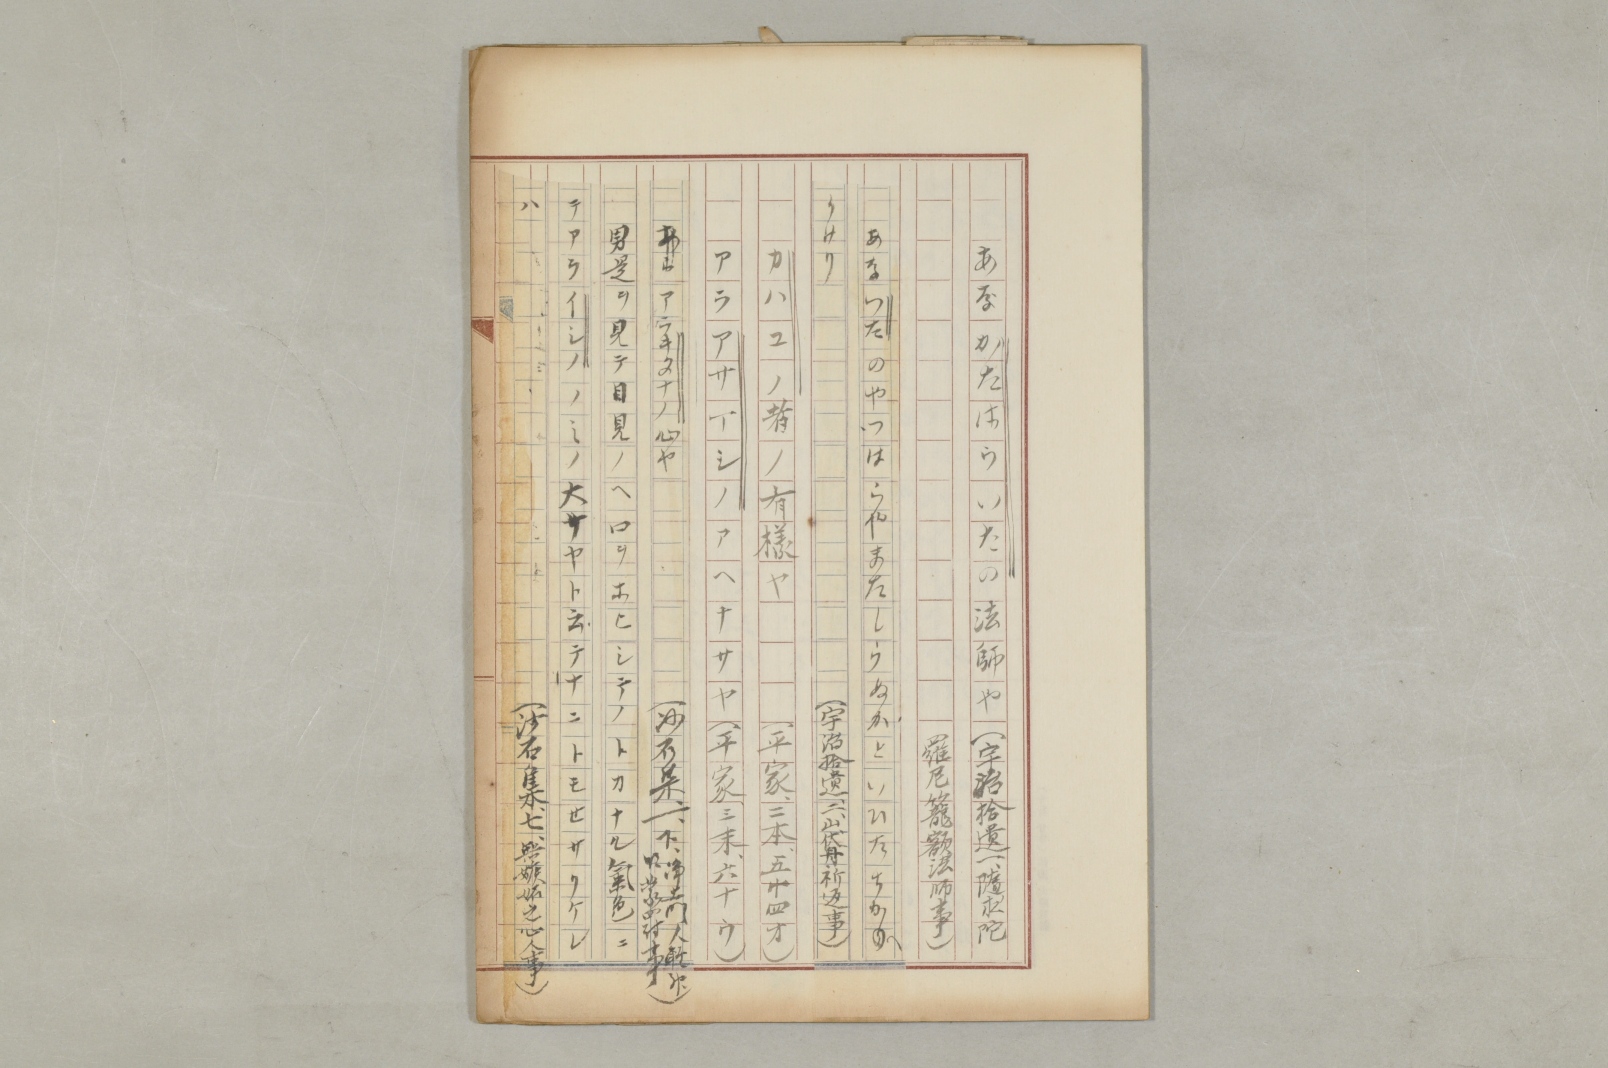 あなかたはらいたの法師や(宇治拾遺一、随求陀
羅尼籠額法師事)
あないたのやつはらやまたしらぬかといひたちかへ
りけり(宇治拾遺二、山伏舟祈返事)
カハユノ者ノ有様ヤ(平家、二本、五十四オ)
アラアサマシノアヘナサヤ(平家三末、六十ウ)
アラキタナノ心ヤ(沙石集、一、下、浄土門人軽神
明蒙罰事)
男是ヲ見テ目見ノヘ口ヲホヒシテノトカナル氣色ニ
テアライシノノミノ大サヤト云テナニトモセサリケレ
ハ(沙石集、七、無嫉妬之心人事)